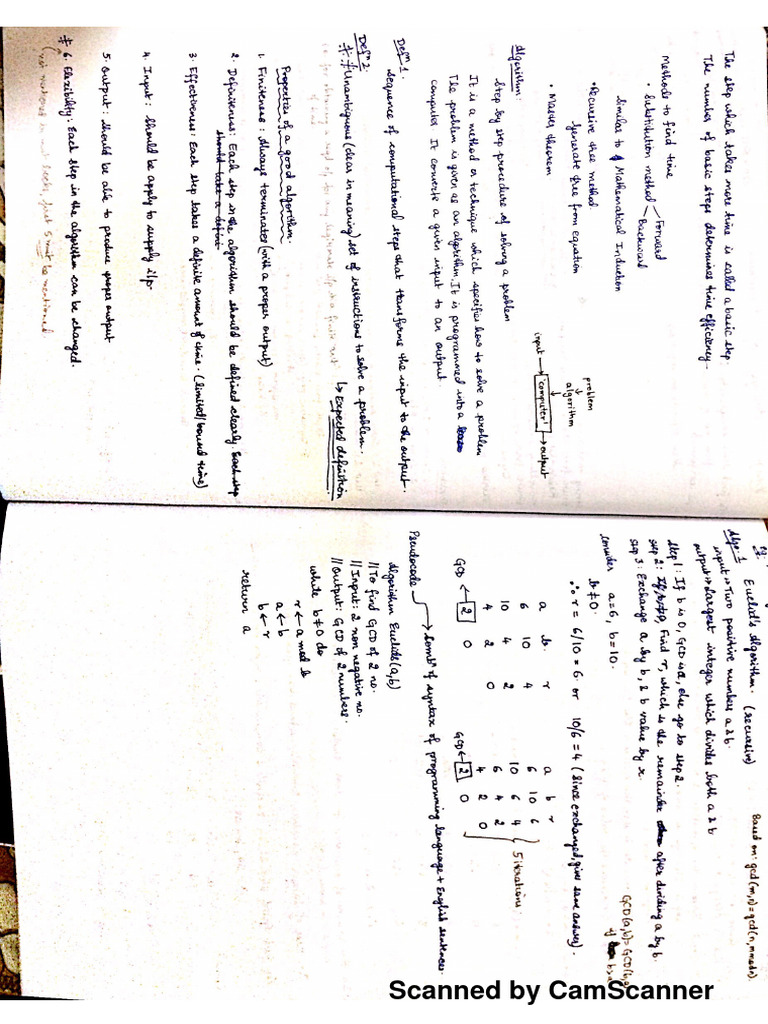 The step which takes more time is called a basic step
The number of basic steps determines time efficiency.
Methods to find time
• Substitution method Forward
Backward
Similar to Mathematical Induction
• Recursive tree method.
generate tree from equation
• Master theorem
problem
↓
algorithm
↓
input → "computer" → output
Algorithm:
Step by step procedure of solving a problem
It is a method or technique which specifies how to solve a problem
The problem is given as an algorithm. It is programmed into a
computer. It converts a given input to an output.
Defn 1.
sequence of computational steps that transforms the input to the output.
Defn 2:
* Unambiguous (clear in meaning) set of instructions to solve a problem.
↳ Expected definition
Properties of a good algorithm.
1. Finiteness: Always terminates (with a proper output)
2. Definiteness: Each step in the algorithm should be defined clearly. Each step
should take a definit
3. Effectiveness: Each step takes a definite amount of time. (limited/bound time)
4. Input: should be apply to supply i/p.
5. Output: should be able to produce proper output
* 6. Flexibility: Each step in the algorithm can be changed.
(not mentioned in books, first 5 must be mentioned
eg.
Based on: gcd(m,n)=gcd(n, m mod n).
Algo: 1 Euclid's Algorithm. (recursive)
input → Two positive numbers a & b.
output → Largest integer which divides both a & b
Step 1: If b is 0, GCD is a, else go to step 2.
step 2: If b≠0, Find r, which is the remainder after dividing a by b.
step 3: Exchange a by b, & b value by r.
b≠0.
consider a=6, b=10.
∴ r = 6/10 = 6 or 10/6 = 4 (since exchanged, gives same answer).
a b r
6 10 4
10 4 2
4 2 0
GCD ← 2 0
a b r
6 10 6
10 6 4
6 4 2
4 2 0
GCD ← 2 0
5 iterations
Pseudocode → Combn of syntax of programming language + English sentences.
Algorithm Euclid(a,b)
// To find GCD of 2 no.
// Input: 2 non negative no.
// Output: GCD of 2 numbers.
while b≠0 do
r ← a mod b
a ← b
b ← r
return a
Scanned by CamScanner